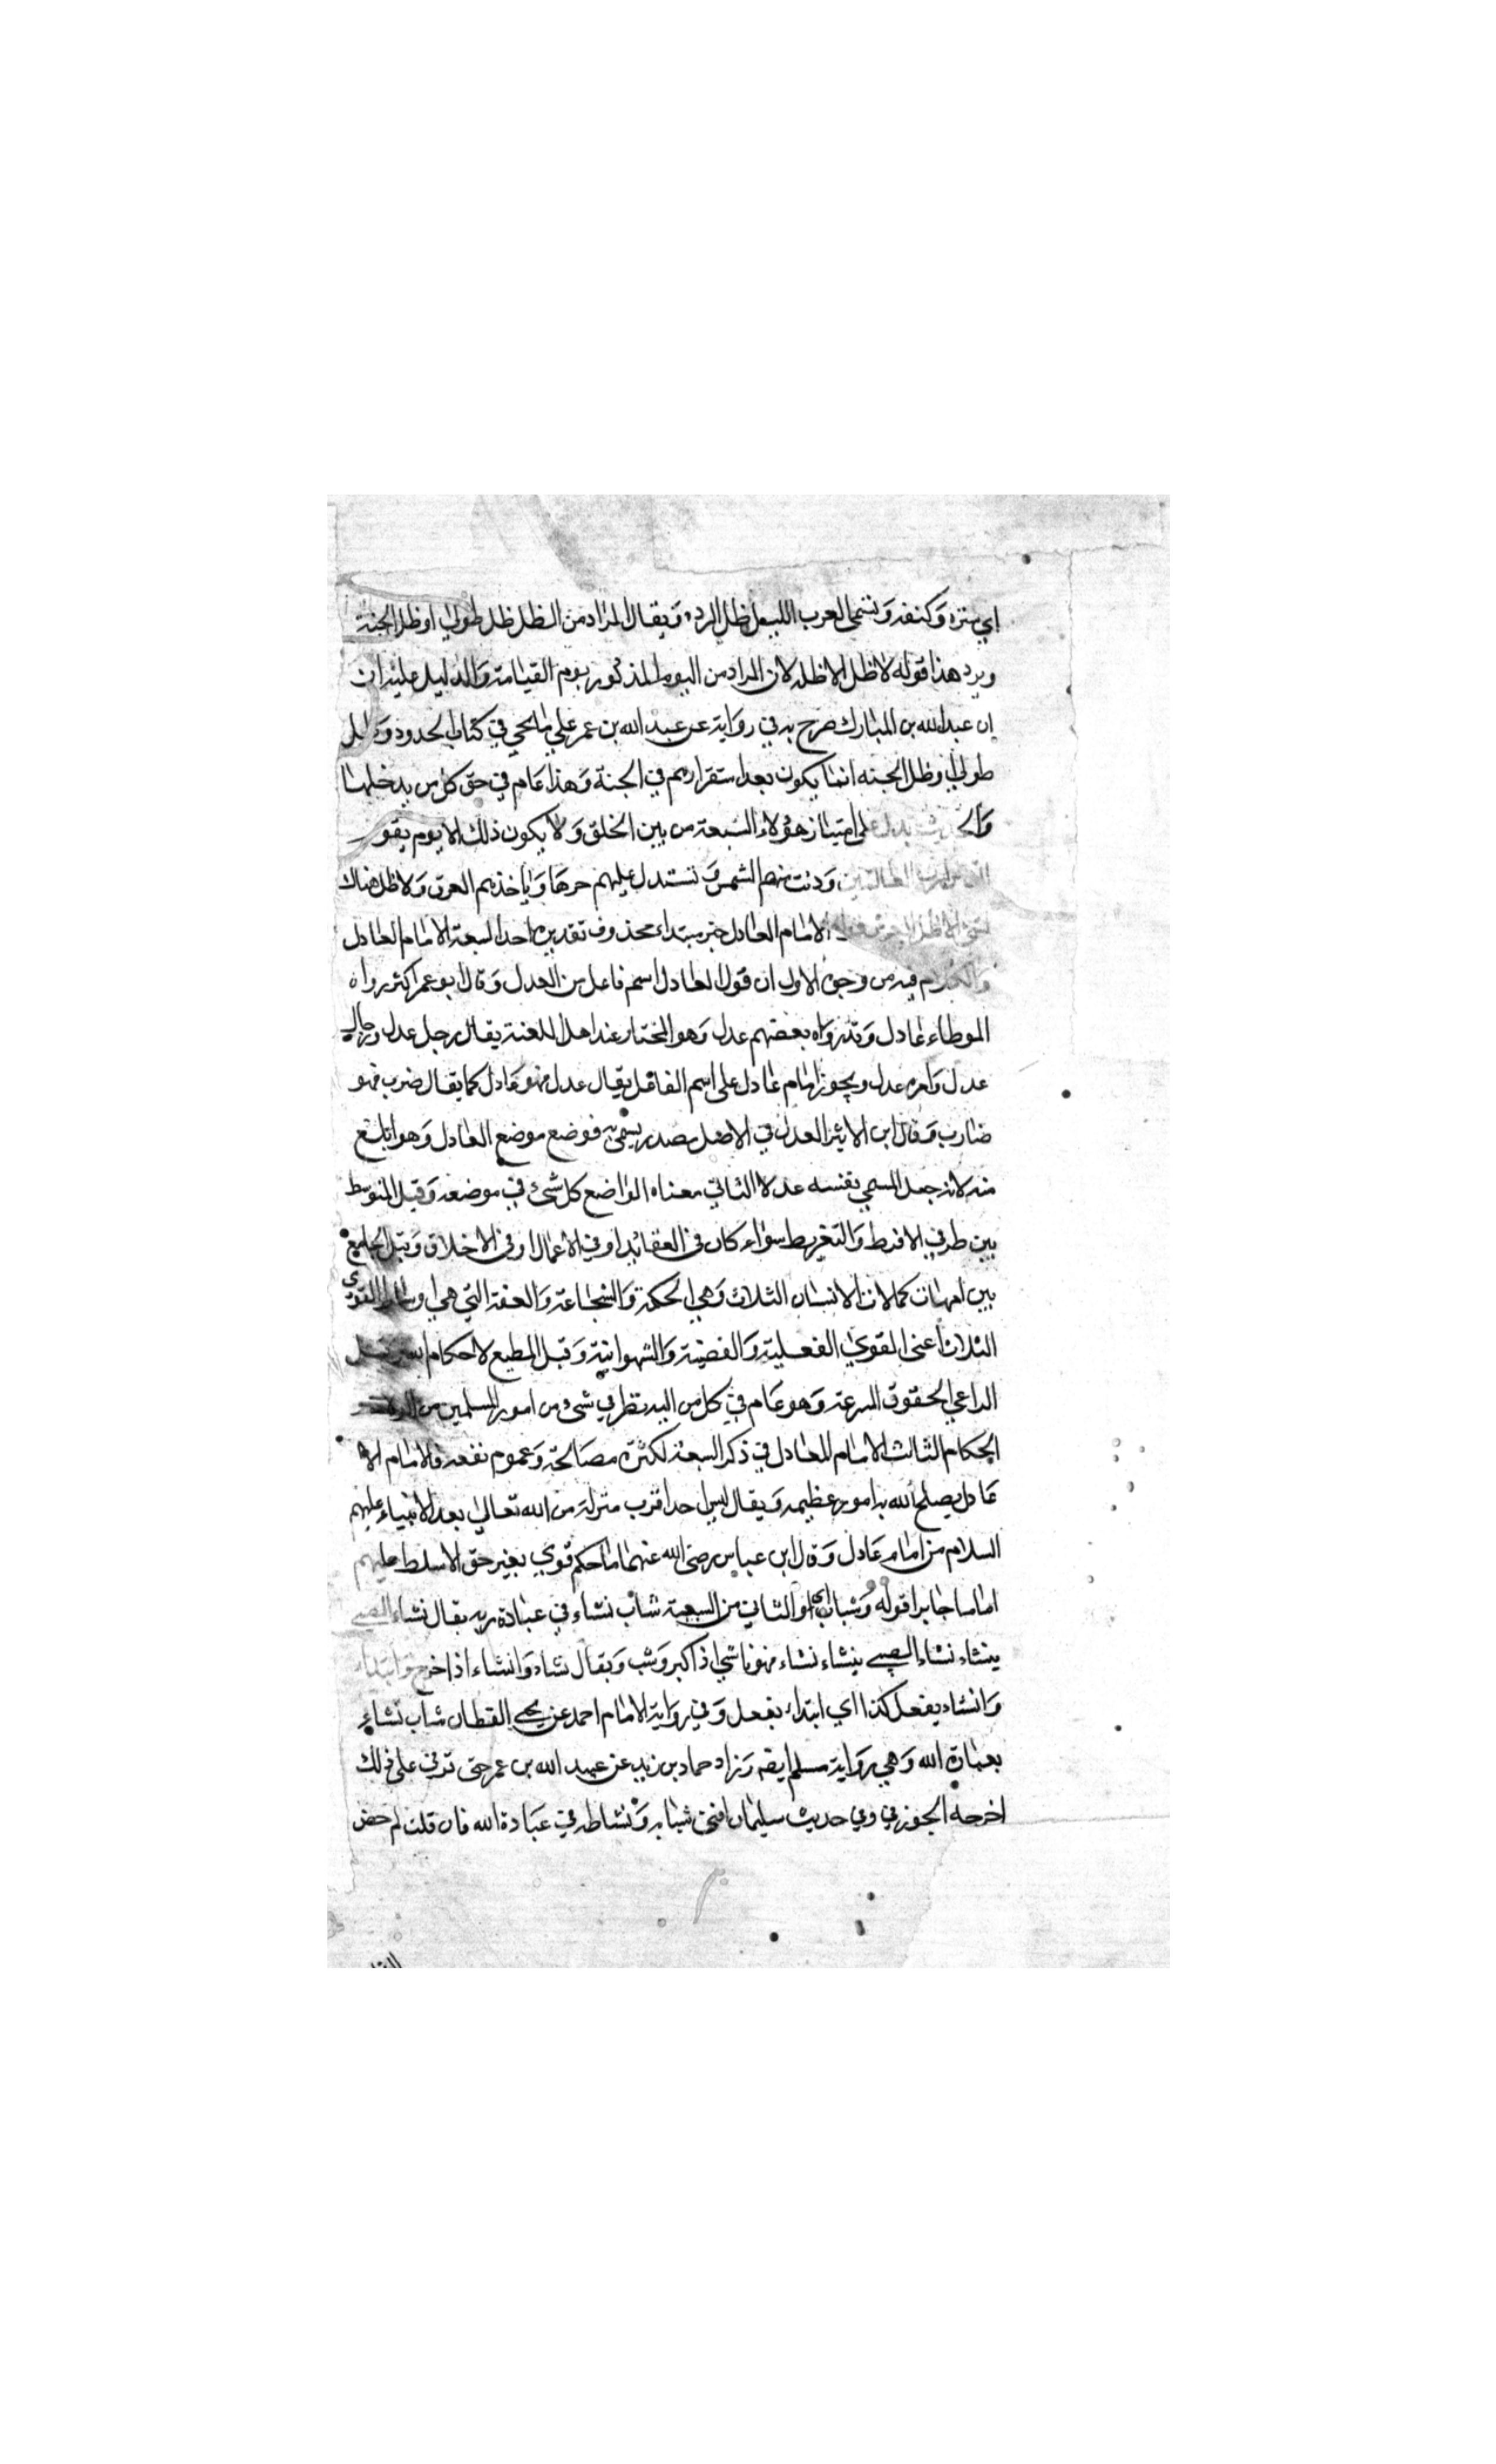 اي ستره وكنفه وتسمى العرب الليل ظل الرد ويقال المراد من الظل ظل طوبي او ظل الجنة
ويرد هذا قوله لا ظل الا ظله لان المراد من اليوم المذكور يوم القيامة والدليل عليه ان
ان عبد الله بن المبارك صرح به في رواية عن عبد الله بن عمر علي ما يجي في كتاب الحدود وظل
طولي او ظل الجنه انما يكون بعد استقرارهم في الجنة وهذا عام في حق كل من يدخلها
والحديث يدل على امتياز هؤلاء السبعة من بين الخلق ولا يكون ذلك الا يوم يقوم
الناس لرب العالمين ودنت منهم الشمس وتشتد عليهم حرها وياخذهم العرق ولا ظل هناك
لشئ الا ظل العرش قوله الامام العادل خبر مبتداء محذوف تقديره احد السبعة الامام العادل
والكلام فيه من وجوه الاول ان قول العادل اسم فاعل من العدل وقال ابو عمر اكثر رواه
الموطاء عادل وقد رواه بعضهم عدل وهو المختار عند اهل اللغة يقال رجل عدل ورجال
عدل وامره عدل ويجوز امام عادل على اسم الفاعل يقال عدل فهو عادل كما يقال ضرب فهو
ضارب وقال ابن الاثير العدل في الاصل مصدر يسمى به فوضع موضع العادل وهو ابلغ
منه لانه جعل المسمي بفنسه عدلا الثاني معناه الواضع كل شئ في موضعه وقيل المتوسط
بين طرفي الافرط والتفريط سواء كان في العقائد او في الاعمال او في الاخلاق وقيل الجامع
بين امهات كمالات الانسان الثلاث وهي الحكمة والشجاعة والعفة التي هي اوساط القوى
الثلاث اعني القوي العقلية والغضبية والشهوانية وقيل المطيع لاحكام الله وقيل
الراعي لحقوق الرعية وهو عام في كل من اليه نظر في شئ من امور المسلمين من الولاة
الحكام الثالث الامام العادل في ذكر السبعة لكثرة مصالحة وعموم نفعه فالامام الا
عادل يصلح الله به امور عظيمه ويقال ليس احد اقرب منزلة من الله تعالي بعد الانبياء عليهم
السلام من امام عادل وقال ابن عباس رضى الله عنهما ما حكم قوم بغير حق الا سلط عليهم
اماما جابرا قوله وشباب اي والثاني من السبعة شاب نشاء في عبادة ربه يقال نشاء الصبي
ينشاء نشاء الصبي ينشاء نشاء فهو ناشي اذا كبر وشب ويقال نشاء وانشاء اذا خرج وابتداء
وانشاء يفعل كذا اي ابتداء يفعل وفي رواية الامام احمد عن يحي القطان شاب نشاء
بعبادة الله وهي رواية مسلم ايضه وزاد حماد بن زيد عن عبيد الله بن عمر حتى توفي على ذلك
اخرجه الجوزقي وفي حديث سليمان افنى شبابه ونشاطه في عبادة الله فان قلت لم خص